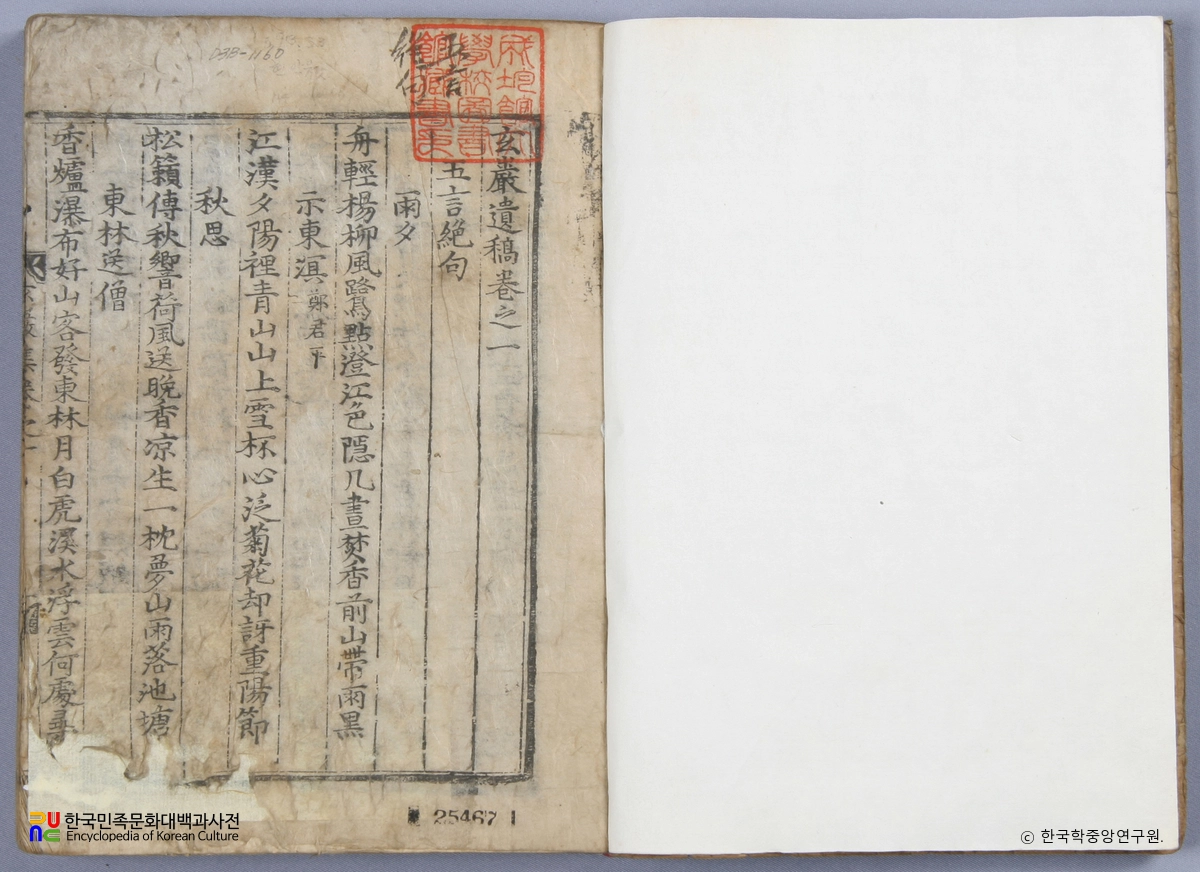 玄巖遺稿卷之一
五言絶句
雨夕
舟輕楊柳風鷺點澄江色隱几晝焚香前山帶雨黑
示東溟 鄭君平
江漢夕陽裡青山山上雪杯心泛菊花却訝重陽節
秋思
松籟傳秋響荷風送晩香凉生一枕夢山雨落池塘
東林送僧
香爐瀑布好山客發東林月白虎溪水浮雲何處尋
25467
한국민족문화대백과사전
Encyclopedia of Korean Culture
ⓒ 한국학중앙연구원.